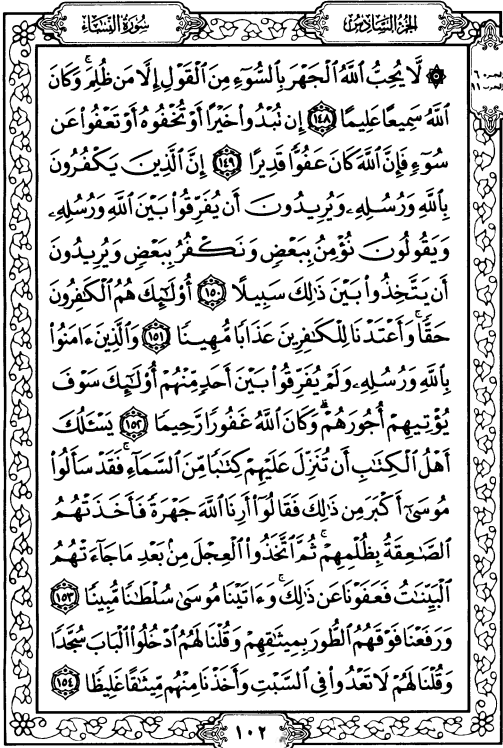 سُورَةُ النِّسَاءِ
الجُزْءُ السَّادِسُ
۞ لَّا يُحِبُّ ٱللَّهُ ٱلْجَهْرَ بِٱلسُّوٓءِ مِنَ ٱلْقَوْلِ إِلَّا مَن ظُلِمَ ۚ وَكَانَ
ٱللَّهُ سَمِيعًا عَلِيمًا ١٤٨ إِن تُبْدُوا۟ خَيْرًا أَوْ تُخْفُوهُ أَوْ تَعْفُوا۟ عَن
سُوٓءٍ فَإِنَّ ٱللَّهَ كَانَ عَفُوًّا قَدِيرًا ١٤٩ إِنَّ ٱلَّذِينَ يَكْفُرُونَ
بِٱللَّهِ وَرُسُلِهِۦ وَيُرِيدُونَ أَن يُفَرِّقُوا۟ بَيْنَ ٱللَّهِ وَرُسُلِهِۦ
وَيَقُولُونَ نُؤْمِنُ بِبَعْضٍ وَنَكْفُرُ بِبَعْضٍ وَيُرِيدُونَ
أَن يَتَّخِذُوا۟ بَيْنَ ذَٰلِكَ سَبِيلًا ١٥٠ أُو۟لَـٰٓئِكَ هُمُ ٱلْكَـٰفِرُونَ
حَقًّا ۚ وَأَعْتَدْنَا لِلْكَـٰفِرِينَ عَذَابًا مُّهِينًا ١٥١ وَٱلَّذِينَ ءَامَنُوا۟
بِٱللَّهِ وَرُسُلِهِۦ وَلَمْ يُفَرِّقُوا۟ بَيْنَ أَحَدٍ مِّنْهُمْ أُو۟لَـٰٓئِكَ سَوْفَ
يُؤْتِيهِمْ أُجُورَهُمْ ۗ وَكَانَ ٱللَّهُ غَفُورًا رَّحِيمًا ١٥٢ يَسْـَٔلُكَ
أَهْلُ ٱلْكِتَـٰبِ أَن تُنَزِّلَ عَلَيْهِمْ كِتَـٰبًا مِّنَ ٱلسَّمَآءِ ۚ فَقَدْ سَأَلُوا۟
مُوسَىٰٓ أَكْبَرَ مِن ذَٰلِكَ فَقَالُوٓا۟ أَرِنَا ٱللَّهَ جَهْرَةً فَأَخَذَتْهُمُ
ٱلصَّـٰعِقَةُ بِظُلْمِهِمْ ۚ ثُمَّ ٱتَّخَذُوا۟ ٱلْعِجْلَ مِنۢ بَعْدِ مَا جَآءَتْهُمُ
ٱلْبَيِّنَـٰتُ فَعَفَوْنَا عَن ذَٰلِكَ ۚ وَءَاتَيْنَا مُوسَىٰ سُلْطَـٰنًا مُّبِينًا ١٥٣
وَرَفَعْنَا فَوْقَهُمُ ٱلطُّورَ بِمِيثَـٰقِهِمْ وَقُلْنَا لَهُمُ ٱدْخُلُوا۟ ٱلْبَابَ سُجَّدًا
وَقُلْنَا لَهُمْ لَا تَعْدُوا۟ فِى ٱلسَّبْتِ وَأَخَذْنَا مِنْهُم مِّيثَـٰقًا غَلِيظًا ١٥٤
١٠٢